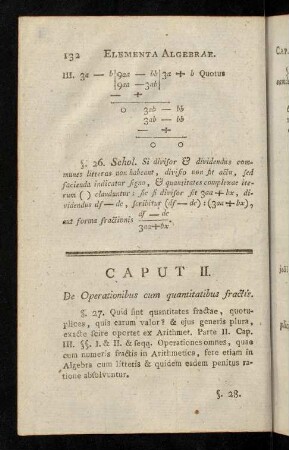 132 ELEMENTA ALGEBRAE.
III. 3a — b|9aa — bb|3a + b Quotus
|9aa — 3ab|
— +
0 3ab — bb
3ab — bb
— +
0 0
§. 26. Schol. Si divisor & dividendus com-
munes litteras non habeant, divisio non fit actu, sed
facienda indicatur signo, & quantitates complexae ite-
rum ( ) clauduntur: sic si divisor sit 3aa + bx, di-
videndus df — de, scribitur (df — de) : (3aa + bx),
aut forma fractionis df — de
3aa + bx.
CAPUT II.
De Operationibus cum quantitatibus fractis.
§. 27. Quid sint quantitates fractae, quotu-
plices, quis earum valor? & ejus generis plura
exacte scire oportet ex Arithmet. Parte II. Cap.
III. §§. I. & II. & seqq. Operationes omnes, quae
cum numeris fractis in Arithmetica, fere etiam in
Algebra cum litteris & quidem eadem penitus ra-
tione absolvuntur.
§. 28.